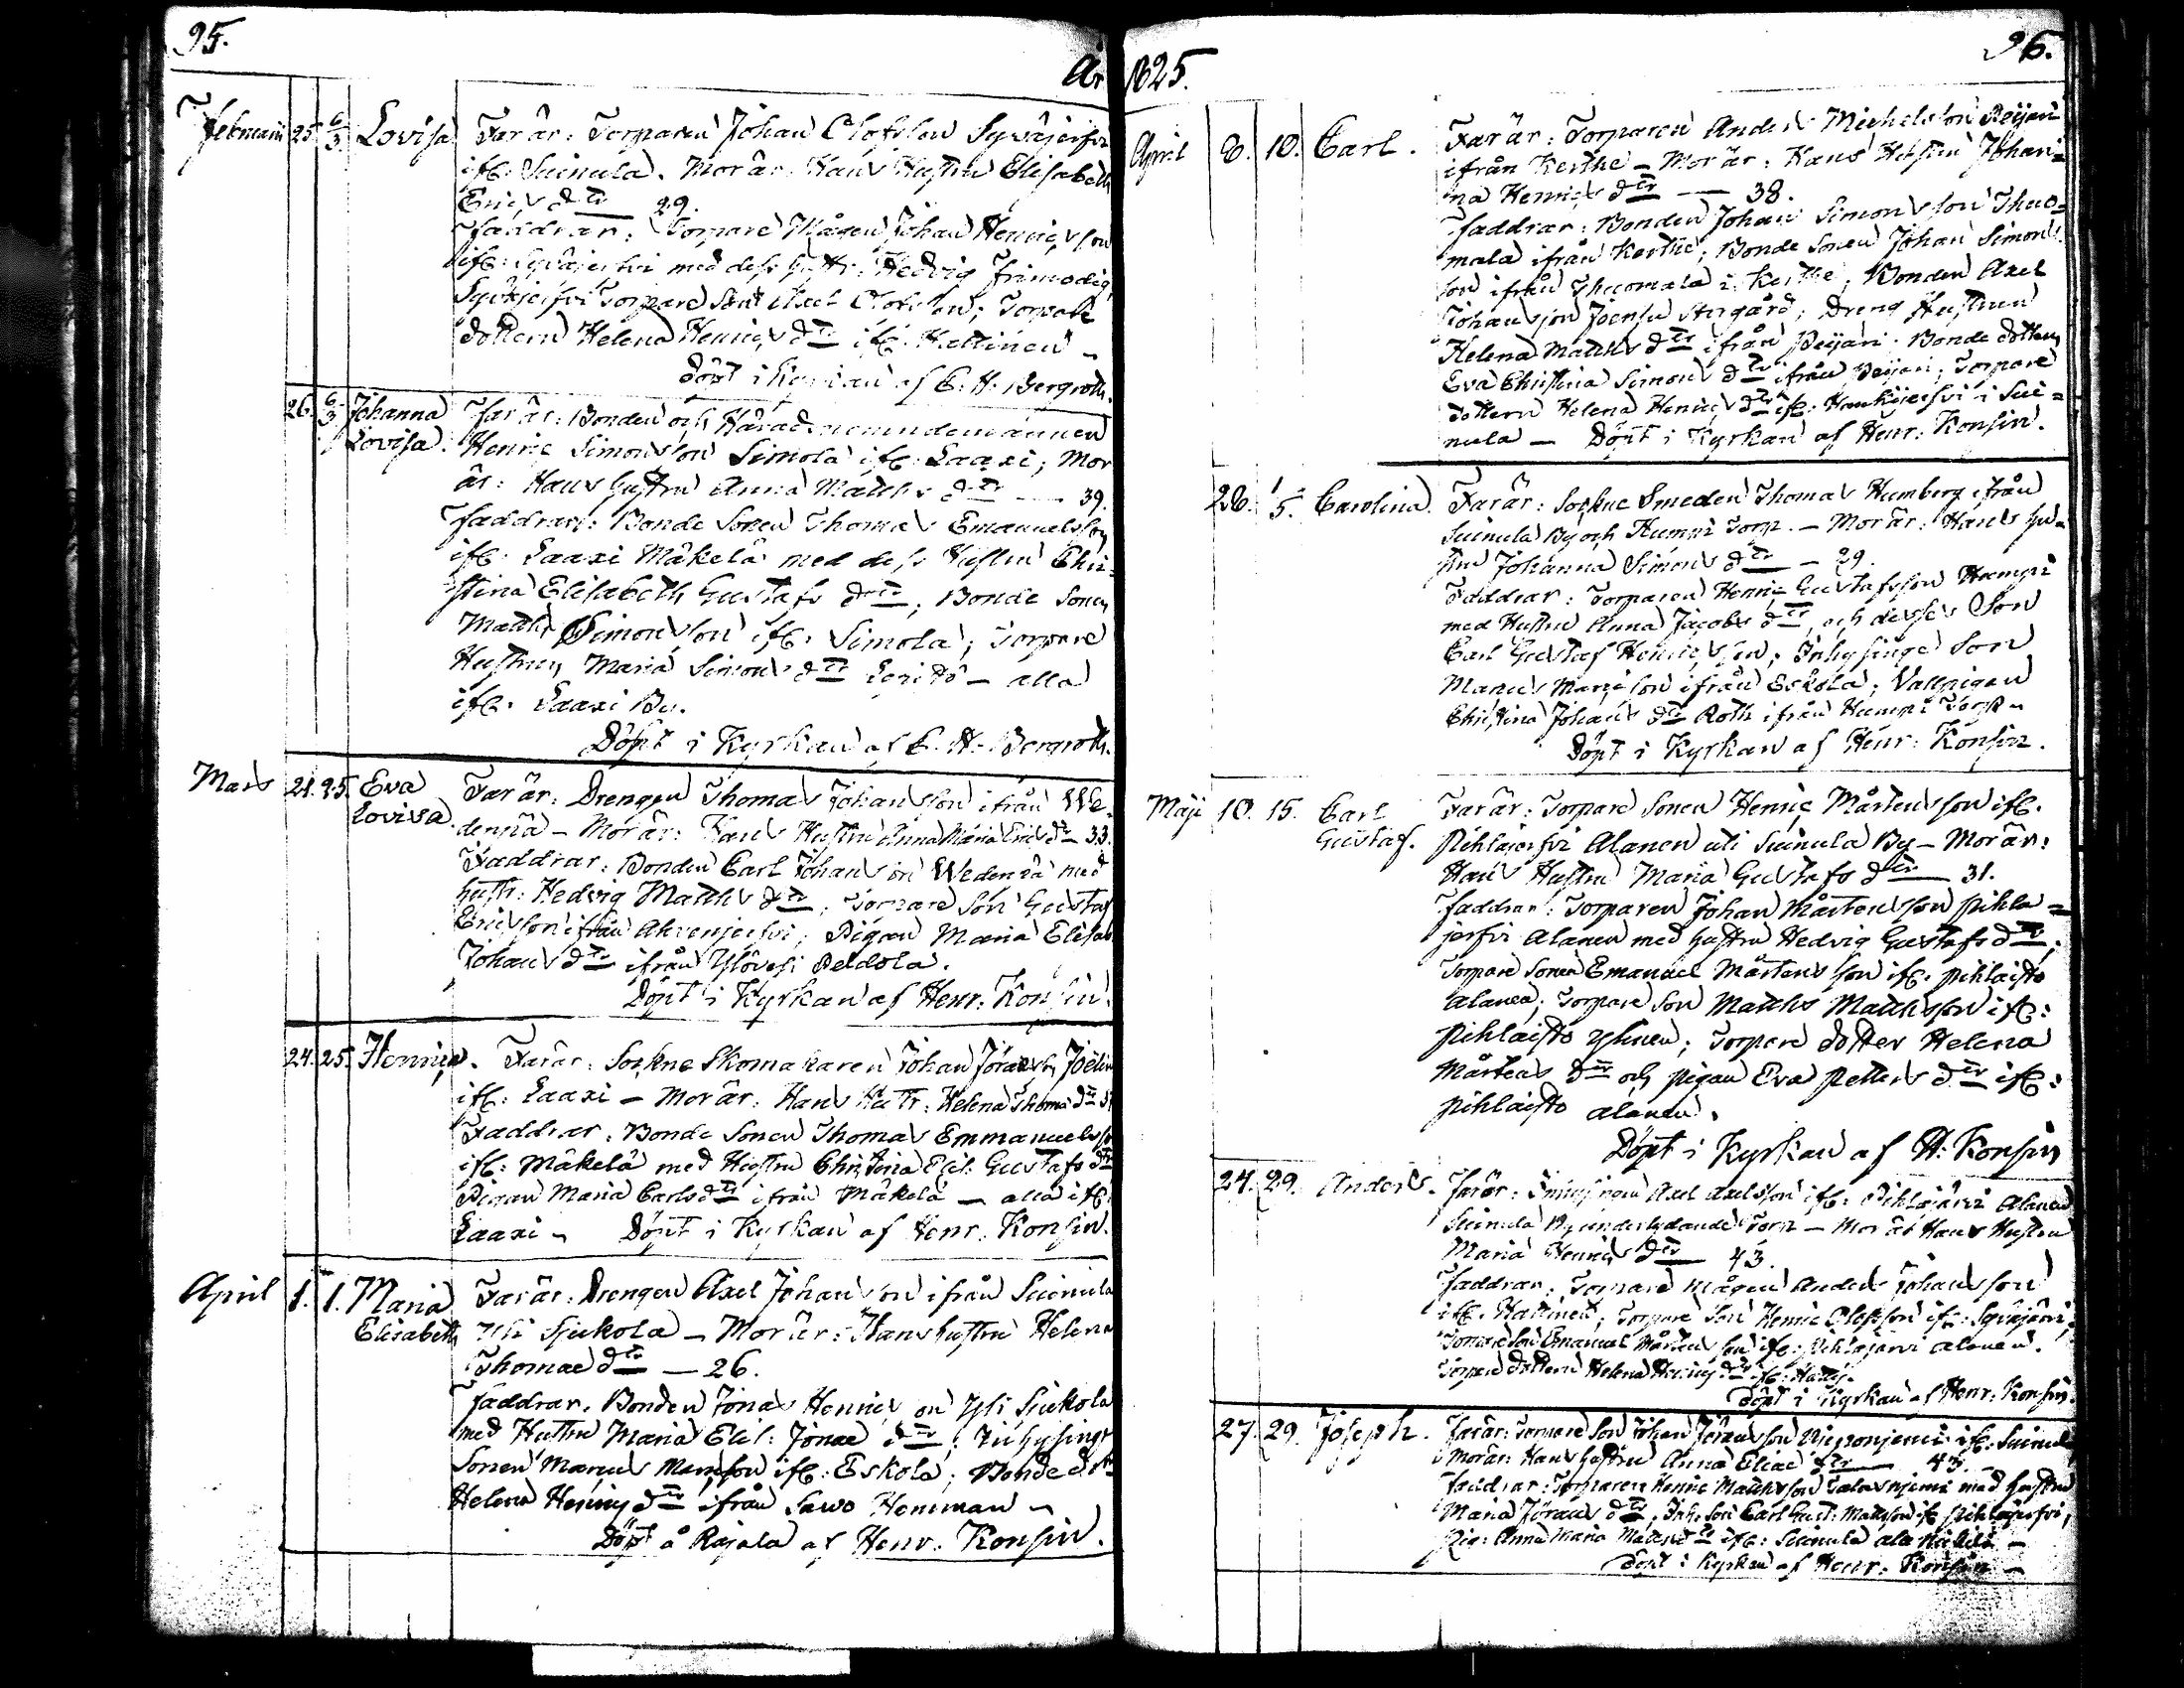 95.
År
Februarii 25. 6/3 Lovisa Far är: Torparen Johan Olofsson Syväjerfvi
ifr. Suinula. Mor är Hans Hustru Elisabeth
Erics dtr 29.
Faddrar: Torpare Mågen Johan Henricsson
ifr. Syväjerfvi med dess hustr. Hedvig Frimodig,
Syväjerfvi Torpare Son Axel Olofsson; Torpare
dottern Helena Henrics dtr ifr. Hattinen –
döpt i Kyrkan af E. H. Bergroth.
26. 6/3 Johanna Far är: Bonden och Häradsnemndemannen
Lovisa. Henric Simonsson Simola ifr. Laaxi; Mor
är: Hans hustru Anna Matths dtr — 39.
Faddrar: Bonde Sonen Thomas Emanuelsson
ifr. Laaxi Mäkelä med dess Hustru Chri-
stina Elisabeth Gustafs dtr; Bonde Sonen
Matths Simonsson ifr. Simola; Torpare
Hustrun Maria Simons dtr – alla
ifr. Laaxi By.
Döpt i Kyrkan af E. H. Bergroth.
Mars 21. 25. Eva Far är: Drengen Thomas Johansson ifrån We-
Lovisa. denpä – Mor är: Hans Hustru Anna Maria Erics dtr 33.
Faddrar: Bonden Carl Johansson Wedenpä med
hustr: Hedvig Matths dtr; Torpare Son Gustaf
Ericsson ifrån Ahvenjerfvi; Pigan Maria Elisab.
Johans dtr ifrån Ylövesi Peldola.
Döpt i Kyrkan af Henr: Konsin.
24. 25. Henric. Far är: Sockne Skomakaren Johan Jöransson Joelin
ifr: Laaxi – Mor är: Hans Hustr: Helena Thomæ dtr
Faddrar: Bonde Sonen Thomas Emmanuelsson
ifr: Mäkelä med Hustru Christina Elis: Gustafs dtr
Pigan Maria Carls dtr ifrån Mäkelä – alla ifr.
Laaxi – Döpt i Kyrkan af Henr. Konsin.
April 1. 1. Maria Far är: Drengen Axel Johansson ifrån Suinula
Elisabeth Yli Sjukola – Mor är: Hans hustru Helena
Thomae dtr — 26.
Faddrar. Bonden Jonas Henricsson Yli Siukola
med Hustru Maria Elis: Jonae dtr; Inhysinge
Sonen Marcus Marcsson ifr: Eskola; Bonde dott.
Helena Henrics dtr ifrån Sawo Hemman –
Döpt å Rajala af Henr. Konsin.
1825.
96.
April 8. 10. Carl. Far är: Torparen Anders Michelsson Peijari
ifrån Kerthe – Mor är: Hans Hustru Johan=
na Henrics dtr — 38.
Faddrar: Bonden Johan Simonsson Thuo=
mala ifrån Kerthe; Bonde Sonen Johan Simons-
son ifrån Thuomala i Kerthe; Bonden Axel
Johansson Joensu Stergård; Dreng Hustrun
Helena Matths dtr ifrån Peijari. Bonde dottern
Eva Christina Simons dtr ifrån Peijari; Torpare
dottern Helena Henrics dtr ifr: Haukijerfvi i Sui=
nula – Döpt i Kyrkan af Henr: Konsin.
26. 1/5. Carolina. Far är: Sockne Smeden Thomas Humberg ifrån
Suinula By och Humpi Torp. – Mor är: Hans hu-
stru Johanna Simons dtr – 29.
Faddrar: Torparen Henric Gustafsson Humpi
med Hustru Anna Jacobs dtr, och desses Son
Carl Gustaf Henricsson; Inhysinge Son
Marcus Marcsson ifrån Eskola; Vallpigan
Christina Johans dtr Roth ifrån Humpi Torp –
Döpt i Kyrkan af Henr: Konsin.
Maji 10. 15. Carl Far är: Torpare Sonen Henric Mårtensson ifr.
Gustaf. Pihlajerfvi Alanen uti Suinula By – Mor är:
Hans Hustru Maria Gustafs dtr — 31.
Faddrar: Torparen Johan Mårtensson Pihla=
jerfvi Alanen med hustru Hedvig Gustafs dtr;
Torpare Sonen Emanuel Mårtensson ifr. Pihlaisto
Alanen; Torpare Son Matths Matthsson ifr:
Pihlaisto Ylinen; Torpare dotter Helena
Mårtens dtr och pigan Eva Petters dtr ifr:
Pihlaisto alanen.
Döpt i Kyrkan af H: Konsin
24. 29. Anders. Far är: Inhysingen Axel Axelsson ifr: Pihlajärvi Alanen
Suinula By underlydande Torp – Mor är Hans Hustru
Maria Henrics dtr 43.
Faddrar: Torpare mågen Anders Johansson
ifr. Hattinen; Torpare Son Henric Olofsson ifr: Syväjärvi;
Torpare Son Emanuel Mårtensson ifr: Pihlajärvi alanen.
Torpare dottern Helena Henrics dtr ifr: Hattis.
Döpt i Kyrkan af Henr: Konsin.
27. 29. Joseph. Far är: Torpare Son Johan Jöransson ifr. Suinula
Mor är: Hans hustru Anna Eliae dtr 43. –
Faddrar: Torparen Henric Matthsson med hustru
Maria Jörans dtr, Inh: Son Carl Gust: Mattsson ifr Pihlajerfvi,
Pig: Anna Maria Matts dtr ifr: Suinula ala –
Döpt i Kyrkan af Henr: Konsin –